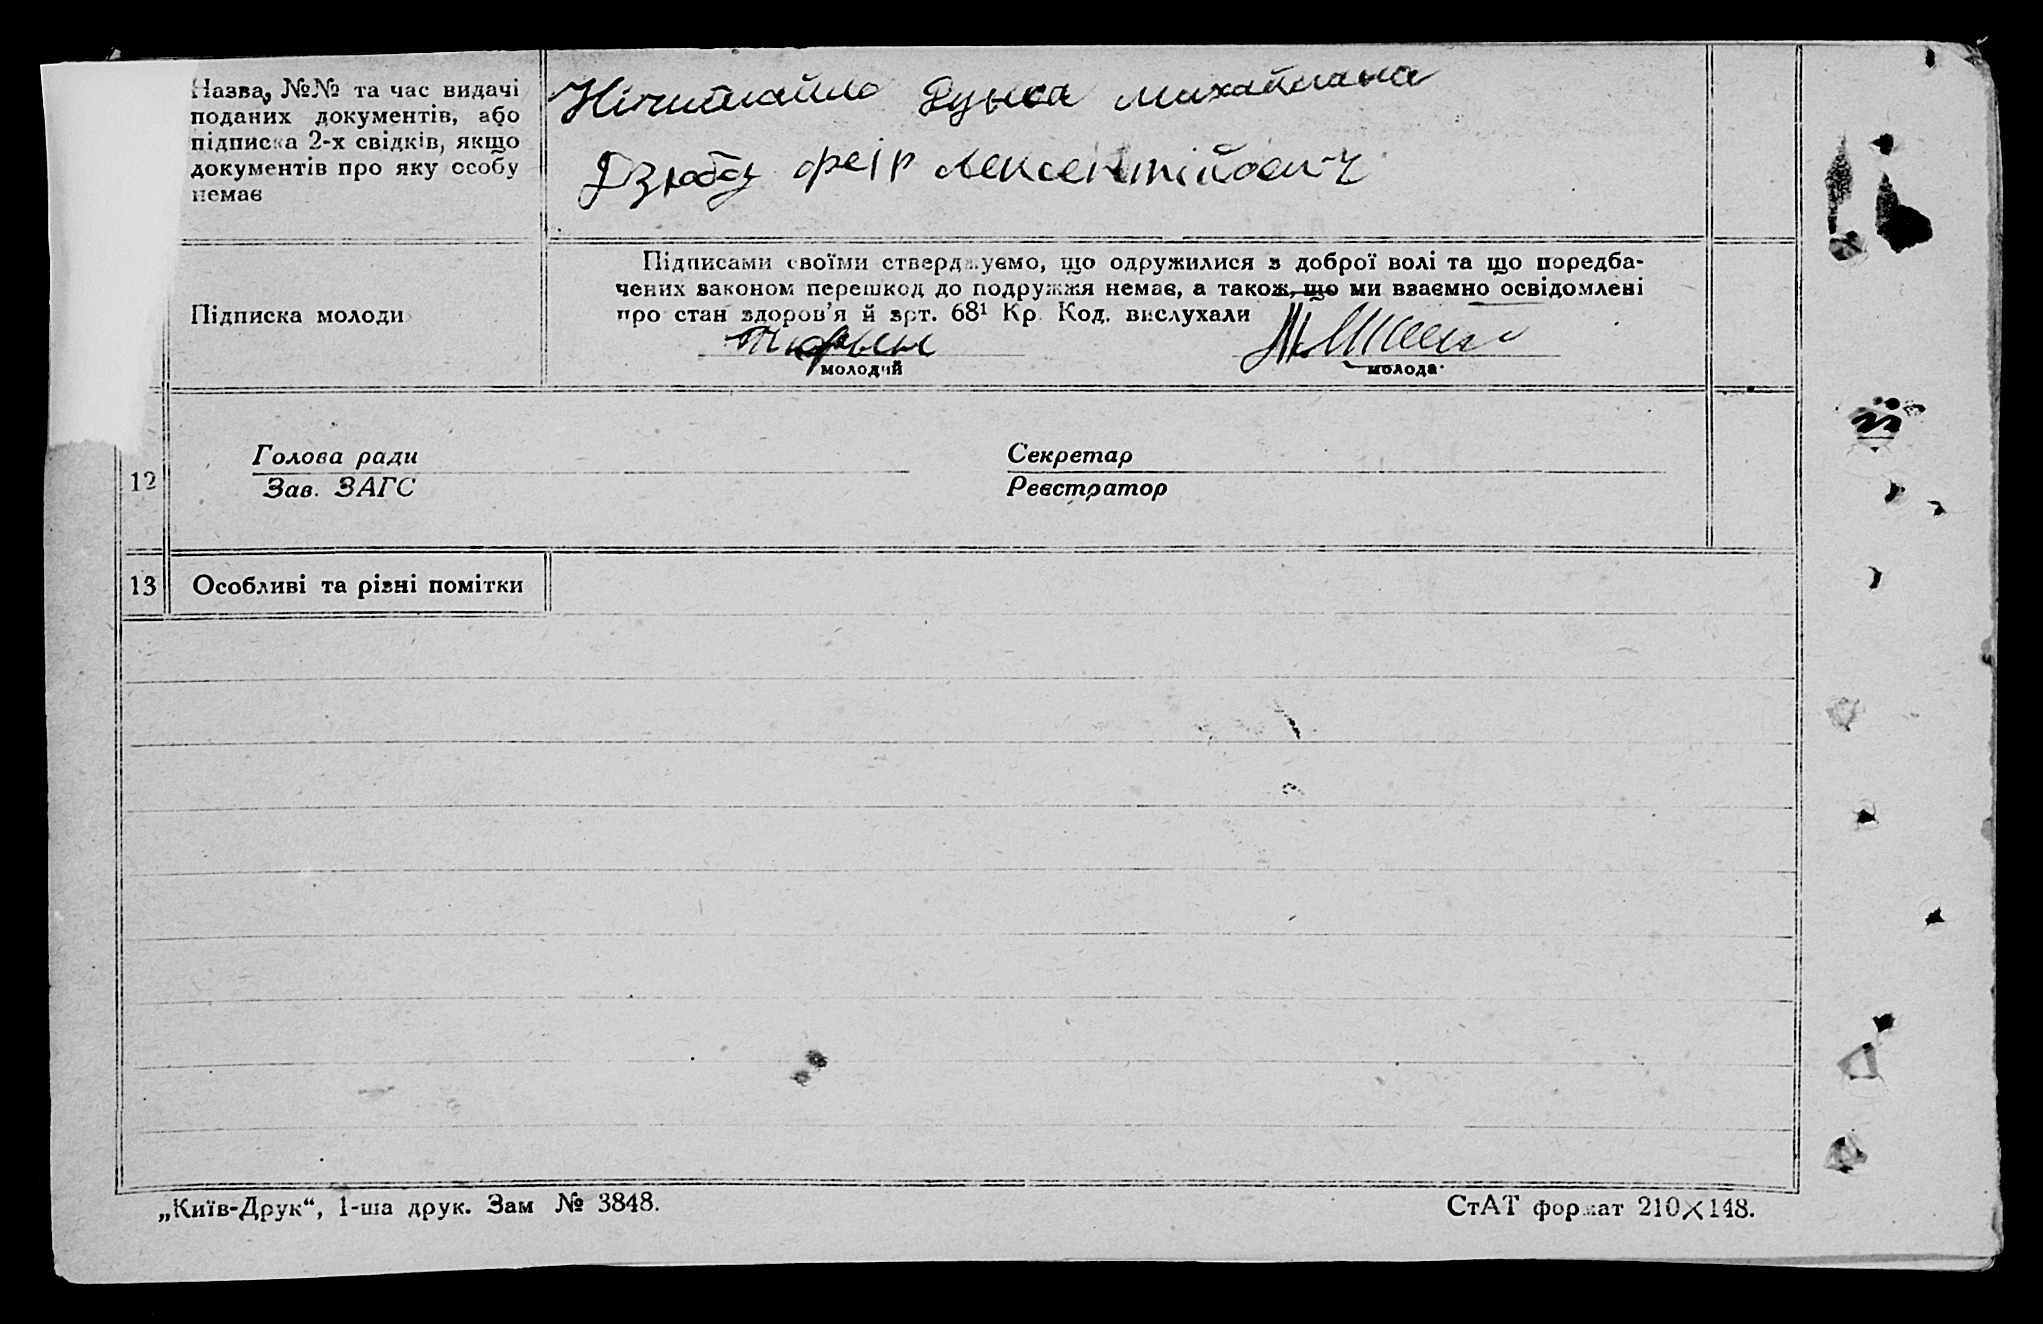 Назва, №№ та час видачі
поданих документів, або
підписка 2-х свідків, якщо
документів про яку особу
немає
Нічитайло михайловна
Дзюба Лексентійович
Підписами своїми стверджуємо, що одружилися з доброї волі та що передба-
чених законом перешкод до подружжя немає, а також, що ми взаємно освідомлені
про стан здоров'я й арт. 68¹ Кр. Код. вислухали
Підписка молоди
молодий
молода
12
Голова ради
Зав. ЗАГС
Секретар
Реєстратор
13 Особливі та різні помітки
„Київ-Друк“, 1-ша друк. Зам № 3848.
СтАТ формат 210×148.